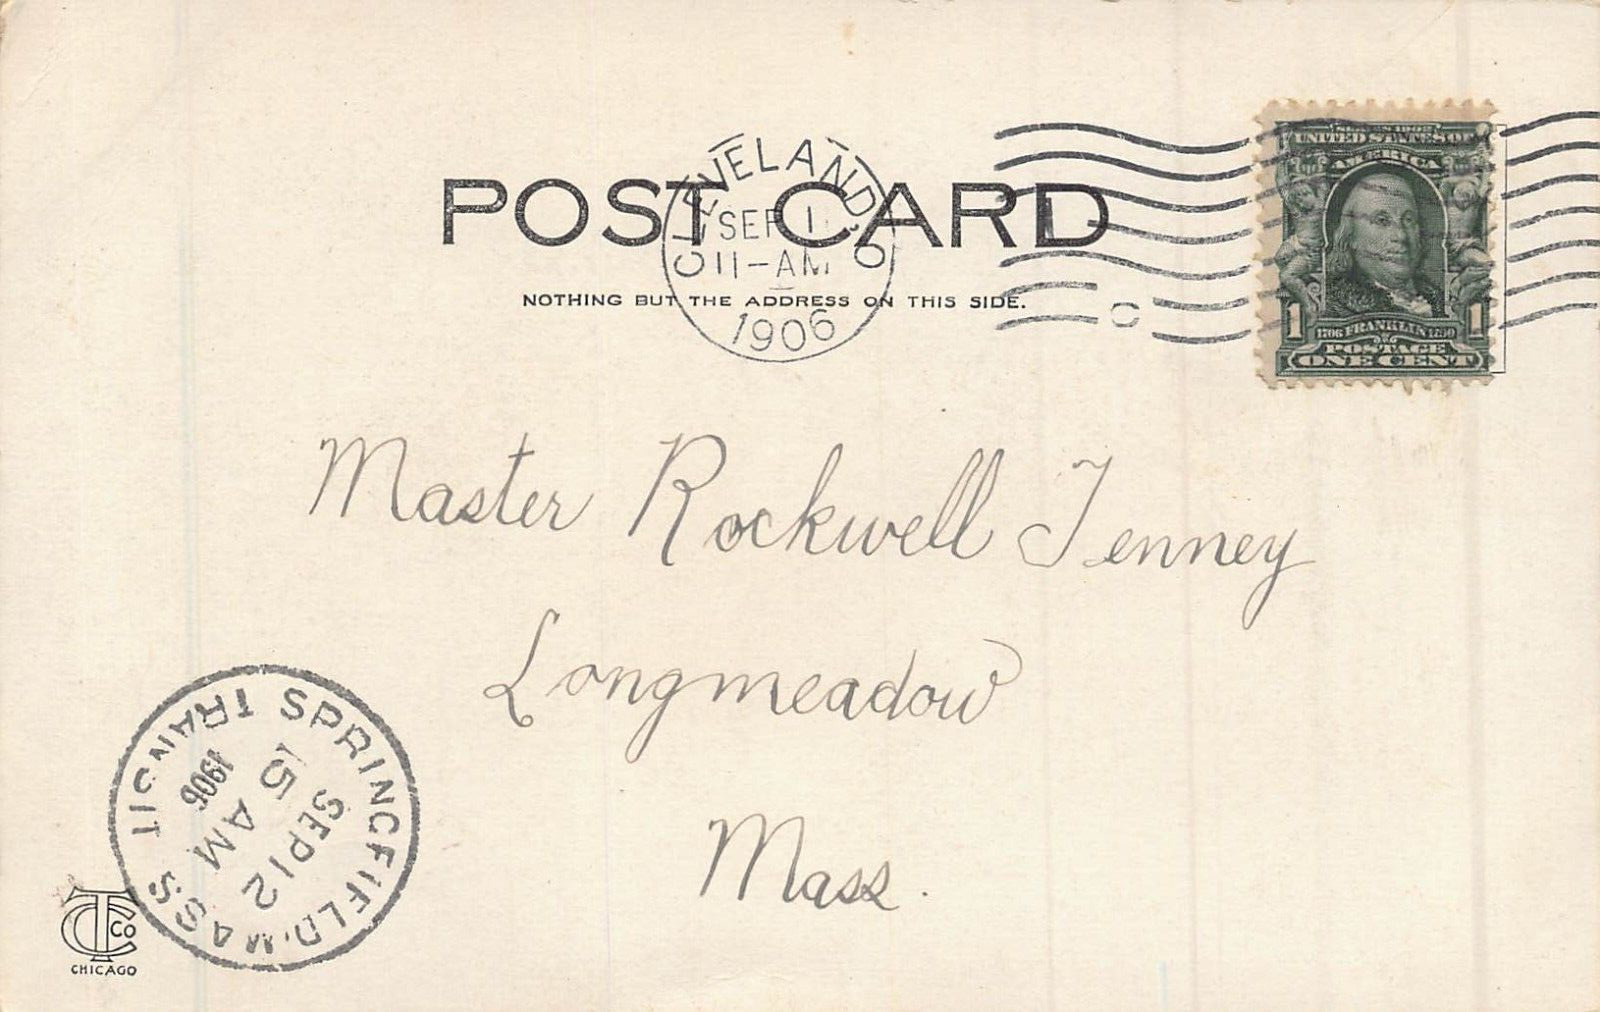 POST CARD
CLEVELAND, O
SEP 1
11-AM
1906
NOTHING BUT THE ADDRESS ON THIS SIDE.
SERIES 1902
UNITED STATES OF
AMERICA
1 1
1706 FRANKLIN 1790
POSTAGE
ONE CENT
C
Master Rockwell Tenney
Longmeadow
Mass.
SPRINGFIELD, MASS
TRANSIT
SEP 12
5 AM
1906
TC Co
CHICAGO